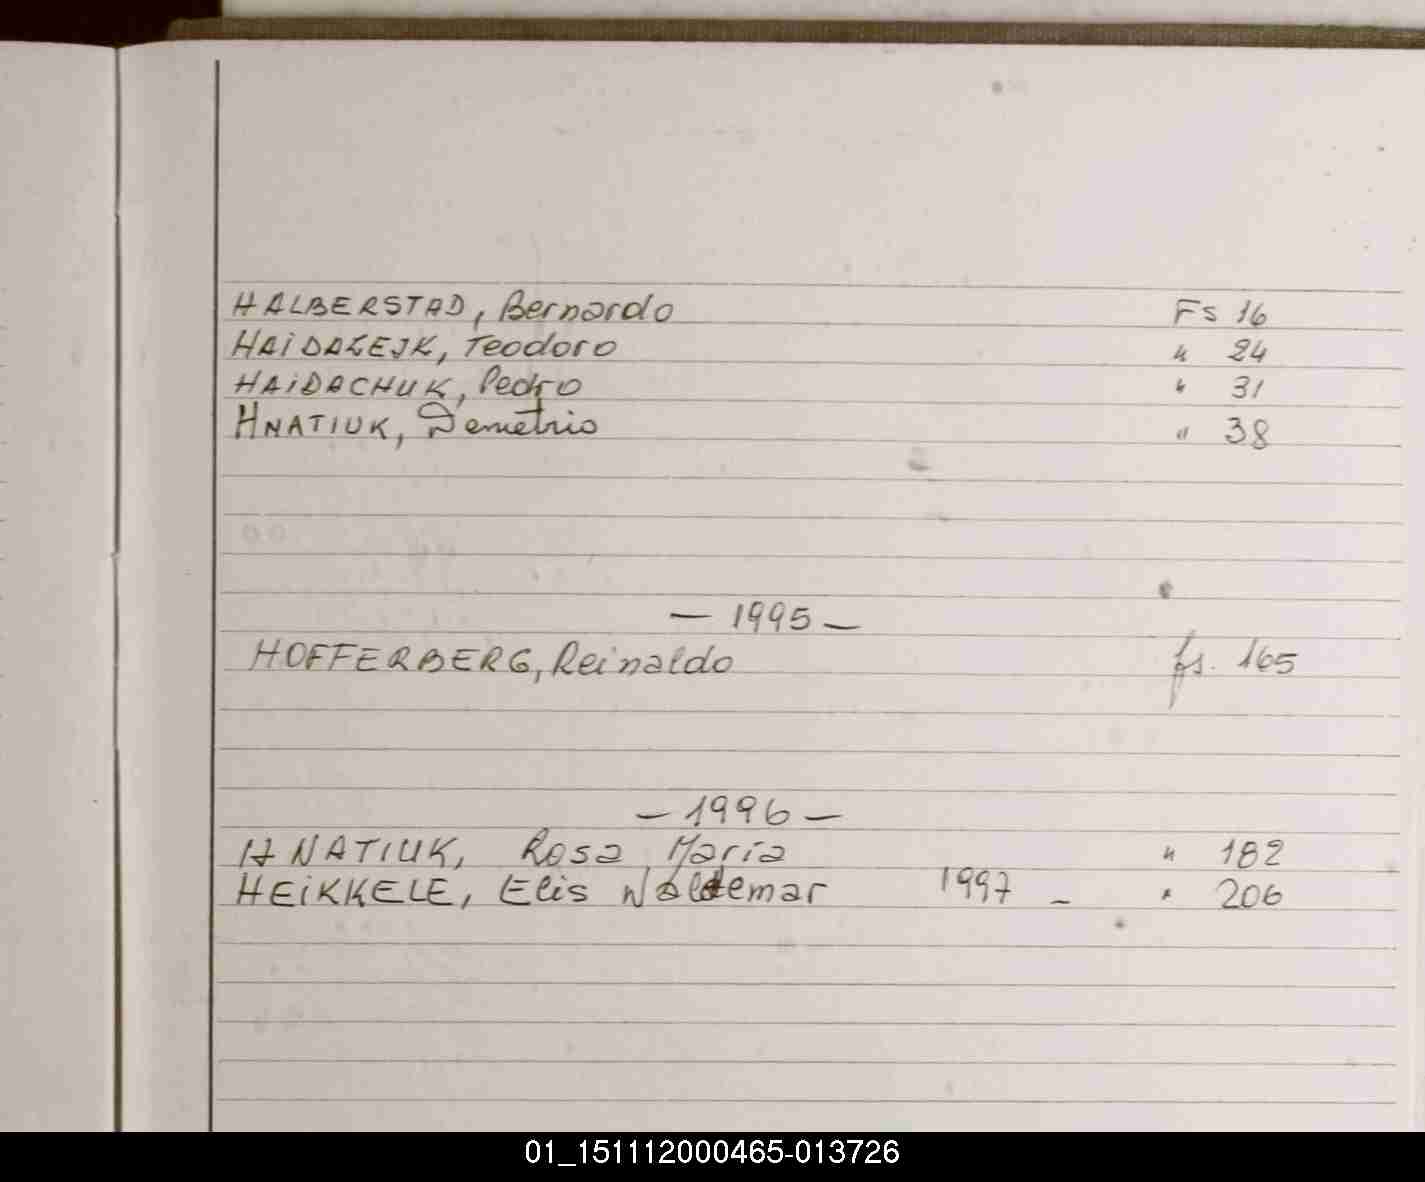 HALBERSTAD, Bernardo Fs 16
HAiDALEJK, Teodoro " 24
HAiDACHUK, Pedro " 31
HNATIUK, Demetrio " 38
— 1995 —
HOFFERBERG, Reinaldo fs. 165
— 1996 —
HNATIUK, Rosa Maria " 182
HEiKKELE, Elis Waldemar 1997 — " 206
01_151112000465-013726